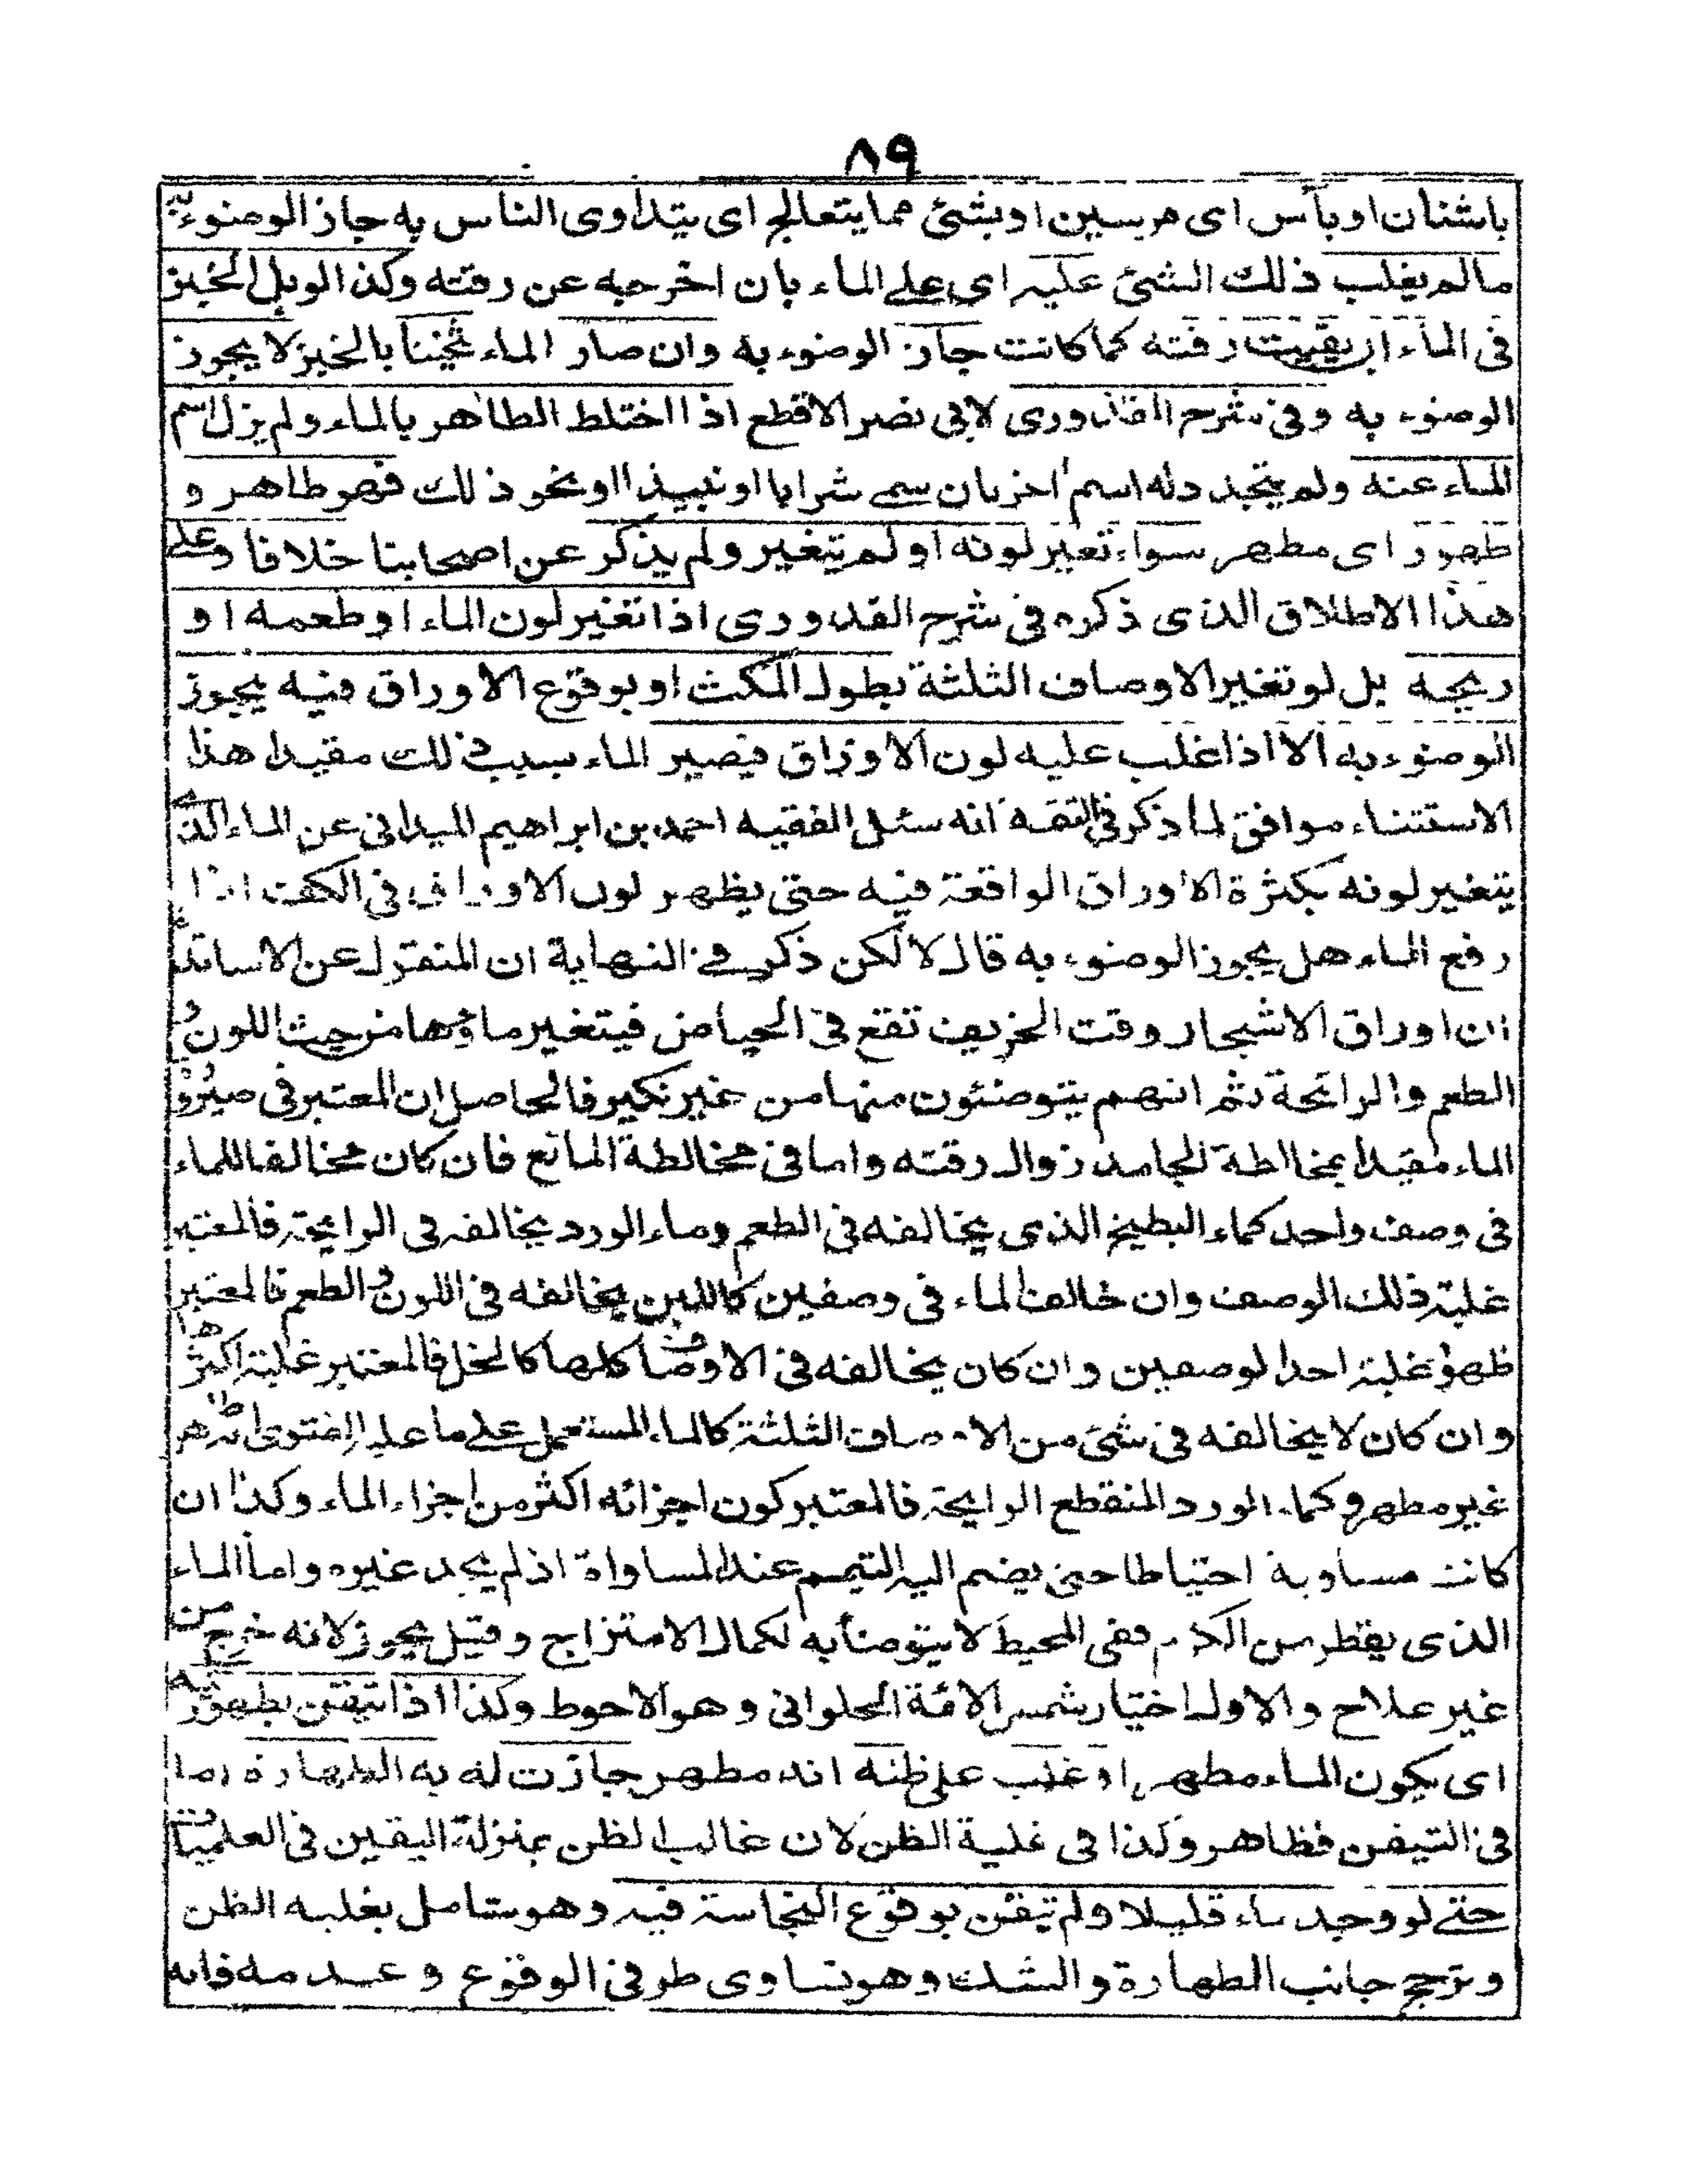 ٨٩
باشنان او بآس اى مرسين او بشئ مما يتعالج اى يتداوى الناس به جاز الوضوء به
مالم يغلب ذلك الشئ عليه اى على الماء بان اخرجه عن رقته وكذا لو بل الخبز
فى الماء ان بقيت رقته كما كانت جاز الوضوء به وان صار الماء ثخينا بالخبز لا يجوز
الوضوء به وفى شرح القدورى لابى نصر الاقطع اذا اختلط الطاهر بالماء ولم يزل اسم
الماء عنه ولم يتجدد له اسم اخر بان سمى شرابا او نبيذا او نحو ذلك فهو طاهر و
طهور اى مطهر سواء تغير لونه او لم يتغير ولم يذكر عن اصحابنا خلافا وعلى
هذا الاطلاق الذى ذكره فى شرح القدورى اذا تغير لون الماء او طعمه او
ريحه بل لو تغير الاوصاف الثلثة بطول المكث او بوقوع الاوراق فيه يجوز
الوضوء به الا اذا غلب عليه لون الاوراق فيصير الماء بسبب ذلك مقيدا هذا
الاستثناء موافق لما ذكر فى التتمة انه سئل الفقيه احمد بن ابراهيم الميدانى عن الماء الذى
يتغير لونه بكثرة الاوراق الواقعة فيه حتى يظهر لون الاوراق فى الكف اذا
رفع الماء هل يجوز الوضوء به قال لا لكن ذكر فى النهاية ان المنقول عن الاساتذة
ان اوراق الاشجار وقت الخريف تقع فى الحياض فيتغير ماؤها من حيث اللون و
الطعم والرائحة ثم انهم يتوضئون منها من غير نكير فالحاصل ان المعتبر فى صيرورة
الماء مقيدا بمخالطة الجامد زوال رقته واما فى مخالطة المائع فان كان مخالفا للماء
فى وصف واحد كماء البطيخ الذى يخالفه فى الطعم وماء الورد يخالفه فى الرايحة فالمعتبر
غلبة ذلك الوصف وان خالف الماء فى وصفين كاللبن يخالفه فى اللون والطعم فالمعتبر
ظهور غلبة احد الوصفين وان كان يخالفه فى الاوصاف كلها كالخل فالمعتبر غلبة اكثرها
وان كان لا يخالفه فى شئ من الاوصاف الثلثة كالماء المستعمل على ما عليه الفتوى انه طاهر
غير مطهر وكماء الورد المنقطع الرايحة فالمعتبر كون اجزائه اكثر من اجزاء الماء وكذا ان
كانت مساوية احتياطا حتى يضم اليه التيمم عند المساواة اذ لم يجد غيره واما الماء
الذى يقطر من الكرم ففى المحيط لا يتوضأ به لكمال الامتزاج وقيل يجوز لانه خرج من
غير علاج والاول اختيار شمس الائمة الحلوانى وهو الاحوط وكذا اذا تيقن بطهوريته
اى بكون الماء مطهرا او غلب على ظنه انه مطهر جازت له به الطهارة اما
فى التيقن فظاهر وكذا فى غلبة الظن لان غالب الظن بمنزلة اليقين فى العلميات
حتى لو وجد ماء قليلا ولم تيقن بوقوع النجاسة فيه وهو شامل بغلبه الظن
وترجح جانب الطهارة والشك وهو تساوى طرفى الوقوع وعدمه فانه